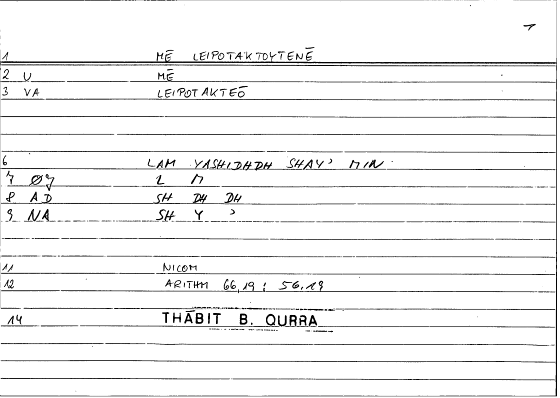 1 MĒ LEIPOTAKTOYTENĒ
2 U MĒ
3 VA LEIPOTAKTEŌ
6 LAM YASHIDHDH SHAY' MIN
7 ØY L M
8 AD SH DH DH
9 NA SH Y '
11 NICOM
12 ARITHM 66,19 : 56,19
14 THĀBIT B. QURRA